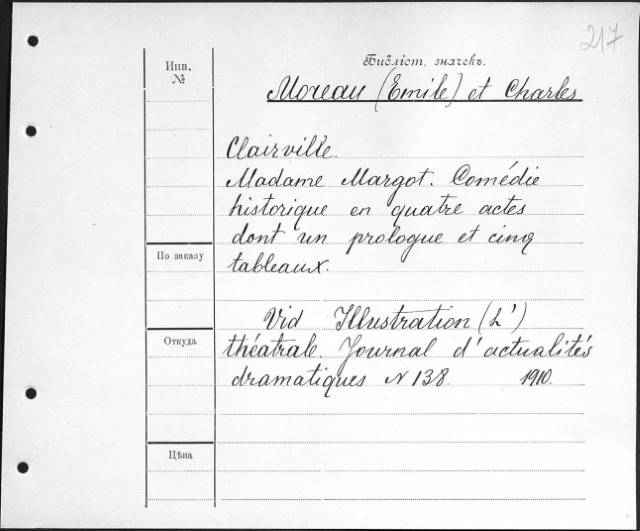 217
Инв. №
Библіот. значекъ.
Moreau (Emile) et Charles
Clairville.
Madame Margot. Comédie
historique en quatre actes
dont un prologue et cinq
tableaux.
По заказу
Vid Illustration (L')
Откуда
théatrale. Journal d'actualités
dramatiques N 138. 1910.
Цѣна